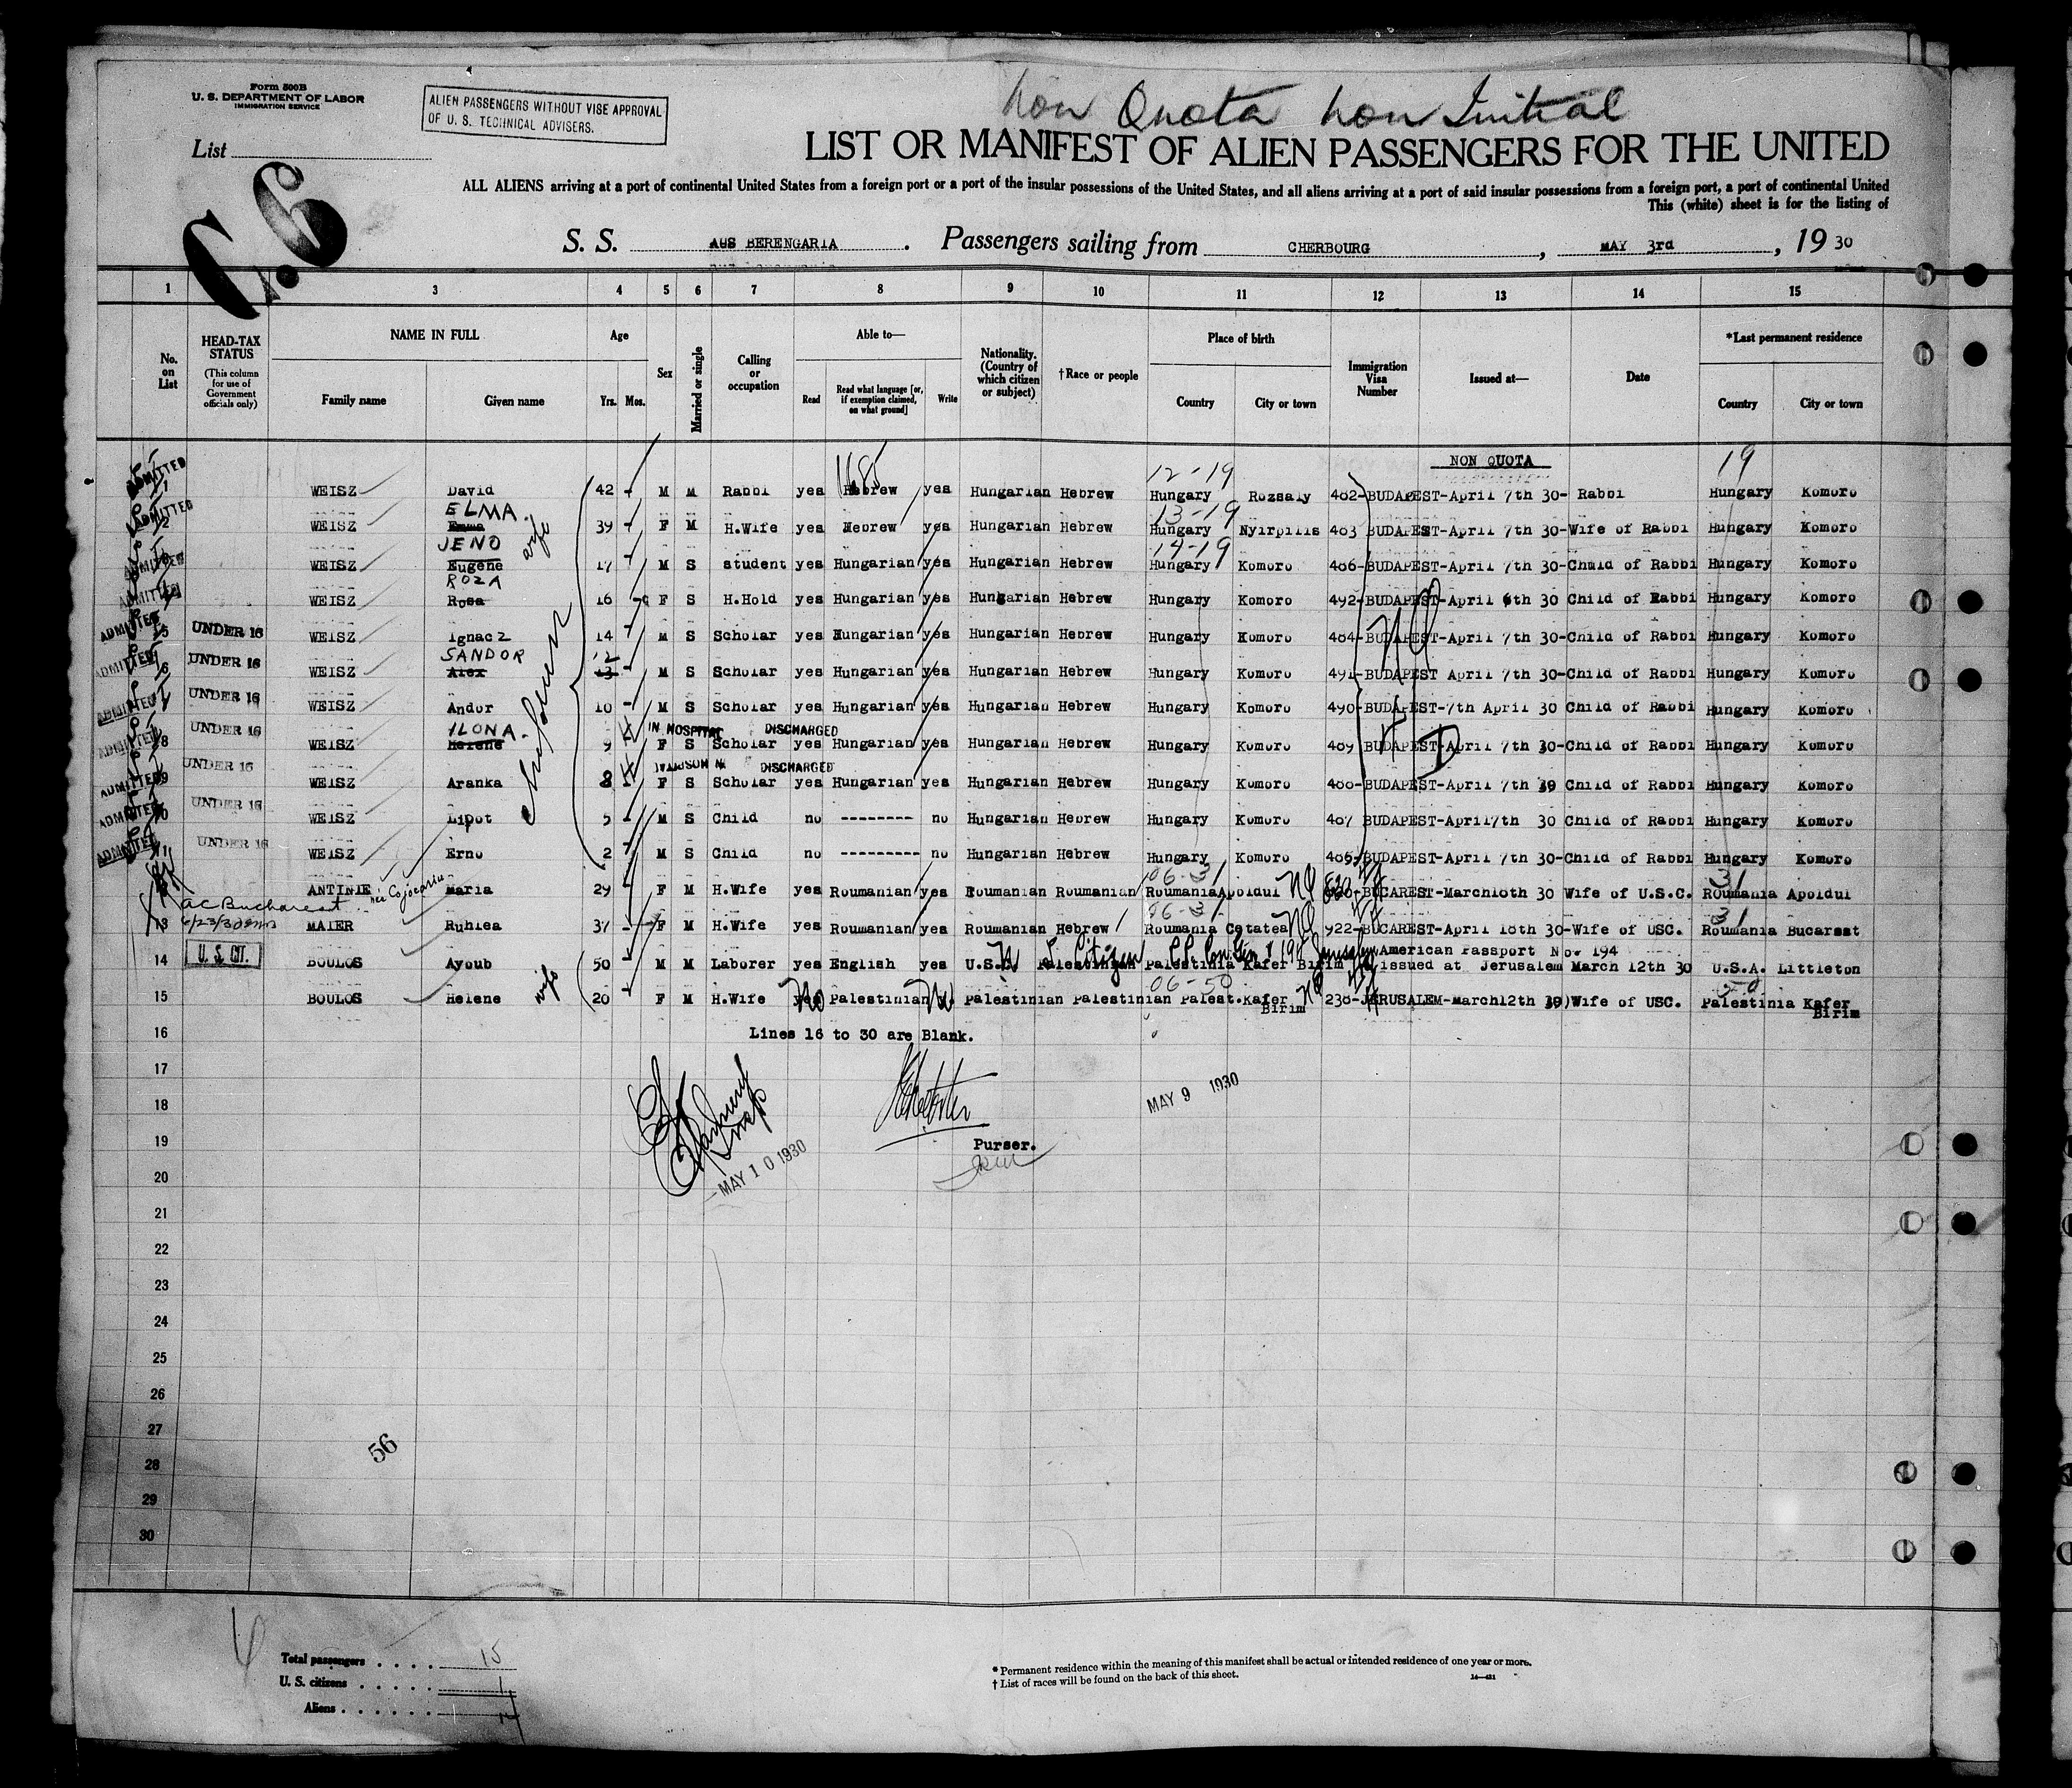 Form 500B
U. S. DEPARTMENT OF LABOR
IMMIGRATION SERVICE
ALIEN PASSENGERS WITHOUT VISE APPROVAL
OF U. S. TECHNICAL ADVISERS.
Non Quota Non Initial
List
LIST OR MANIFEST OF ALIEN PASSENGERS FOR THE UNITED
ALL ALIENS arriving at a port of continental United States from a foreign port or a port of the insular possessions of the United States, and all aliens arriving at a port of said insular possessions from a foreign port, a port of continental United
This (white) sheet is for the listing of
S. S. AUS BERENGARIA. Passengers sailing from CHERBOURG, MAY 3rd, 19 30
1 3 4 5 6 7 8 9 10 11 12 13 14 15
No. on List
HEAD-TAX STATUS
(This column for use of Government officials only)
NAME IN FULL
Family name
Given name
Age
Yrs. Mos.
Sex
Married or single
Calling or occupation
Able to—
Read
Read what language [or, if exemption claimed, on what ground]
Write
Nationality. (Country of which citizen or subject)
†Race or people
Place of birth
Country
City or town
Immigration Visa Number
Issued at—
Date
*Last permanent residence
Country
City or town
NON QUOTA
12-19 19
ADMITTED WEISZ David 42 M M Rabbi yes Hebrew yes Hungarian Hebrew Hungary Rozsaly 482-BUDAPEST-April 7th 30- Rabbi Hungary Komoro
ELMA. 13-19
ADMITTED 2 WEISZ Emma wife 39 F M H.Wife yes Hebrew yes Hungarian Hebrew Hungary Nyirpilis 483 BUDAPEST-April 7th 30-Wife of Rabbi Hungary Komoro
JENO 14-19
ADMITTED WEISZ Eugene 17 M S student yes Hungarian yes Hungarian Hebrew Hungary Komoro 486-BUDAPEST-April 7th 30-Child of Rabbi Hungary Komoro
ROZA
ADMITTED WEISZ Rosa 16 F S H.Hold yes Hungarian yes Hungarian Hebrew Hungary Komoro 492-BUDAPEST-April 6th 30 Child of Rabbi Hungary Komoro
ADMITTED 5 UNDER 16 WEISZ Ignacz 14 M S Scholar yes Hungarian yes Hungarian Hebrew Hungary Komoro 484-BUDAPEST-April 7th 30-Child of Rabbi Hungary Komoro
SANDOR 12
ADMITTED 6 UNDER 16 WEISZ Alex 13 M S Scholar yes Hungarian yes Hungarian Hebrew Hungary Komoro 491-BUDAPEST April 7th 30-Child of Rabbi Hungary Komoro
ADMITTED UNDER 16 WEISZ Andor 10 M S Scholar yes Hungarian yes Hungarian Hebrew Hungary Komoro 490-BUDAPEST-7th April 30 Child of Rabbi Hungary Komoro
ILONA. IN HOSPITAL DISCHARGED
ADMITTED 8 UNDER 16 WEISZ Helene 9 F S Scholar yes Hungarian yes Hungarian Hebrew Hungary Komoro 489 BUDAPEST-April 7th 30-Child of Rabbi Hungary Komoro
DISCHARGED
ADMITTED 9 UNDER 16 WEISZ Aranka 8 F S Scholar yes Hungarian yes Hungarian Hebrew Hungary Komoro 488-BUDAPEST-April 7th 30 Child of Rabbi Hungary Komoro
ADMITTED 10 UNDER 16 WEISZ Lipot 5 M S Child no -------- no Hungarian Hebrew Hungary Komoro 487 BUDAPEST-April7th 30 Child of Rabbi Hungary Komoro
ADMITTED 11 UNDER 16 WEISZ Erno 2 M S Child no --------- no Hungarian Hebrew Hungary Komoro 485-BUDAPEST-April 7th 30-Child of Rabbi Hungary Komoro
06-31 31
ANTINIE née Cojocariu Maria 29 F M H.Wife yes Roumanian yes Roumanian Roumanian Roumania Apoldul BUCAREST-March18th 30 Wife of U.S.C. Roumania Apoldul
AC Bucharest
06-31 31
13 6/23/30 MAIER Ruhlea 37 F M H.Wife yes Roumanian yes Roumanian Hebrew Roumania Cetatea NQ 922-BUCAREST-April 18th 30-Wife of USC. Roumania Bucarest
U. S. CIT. U.S. Citizen American Passport Nov 194
14 BOULOS Ayoub 50 M M Laborer yes English yes U.S.A. Palestinian Palestinia Kafer Birim issued at Jerusalem March 12th 30 U.S.A. Littleton
06-50 50
15 BOULOS Helene wife 20 F M H.Wife yes No Palestinian No Palestinian Palestinian Palest. Kafer Birim NQ 238-JERUSALEM-March12th 30)Wife of USC. Palestinia Kafer Birim
16 Lines 16 to 30 are Blank.
17
18 MAY 9 1930
19 Purser.
20 MAY 10 1930
21
22
23
24
25
26
27
56
28
29
30
Total passengers . . . . 15
U. S. citizens . . . . . 1
Aliens . . . . . .
* Permanent residence within the meaning of this manifest shall be actual or intended residence of one year or more.
† List of races will be found on the back of this sheet.